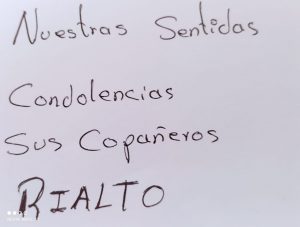 Nuestras Sentidas
Condolencias
Sus Copañeros
RIALTO